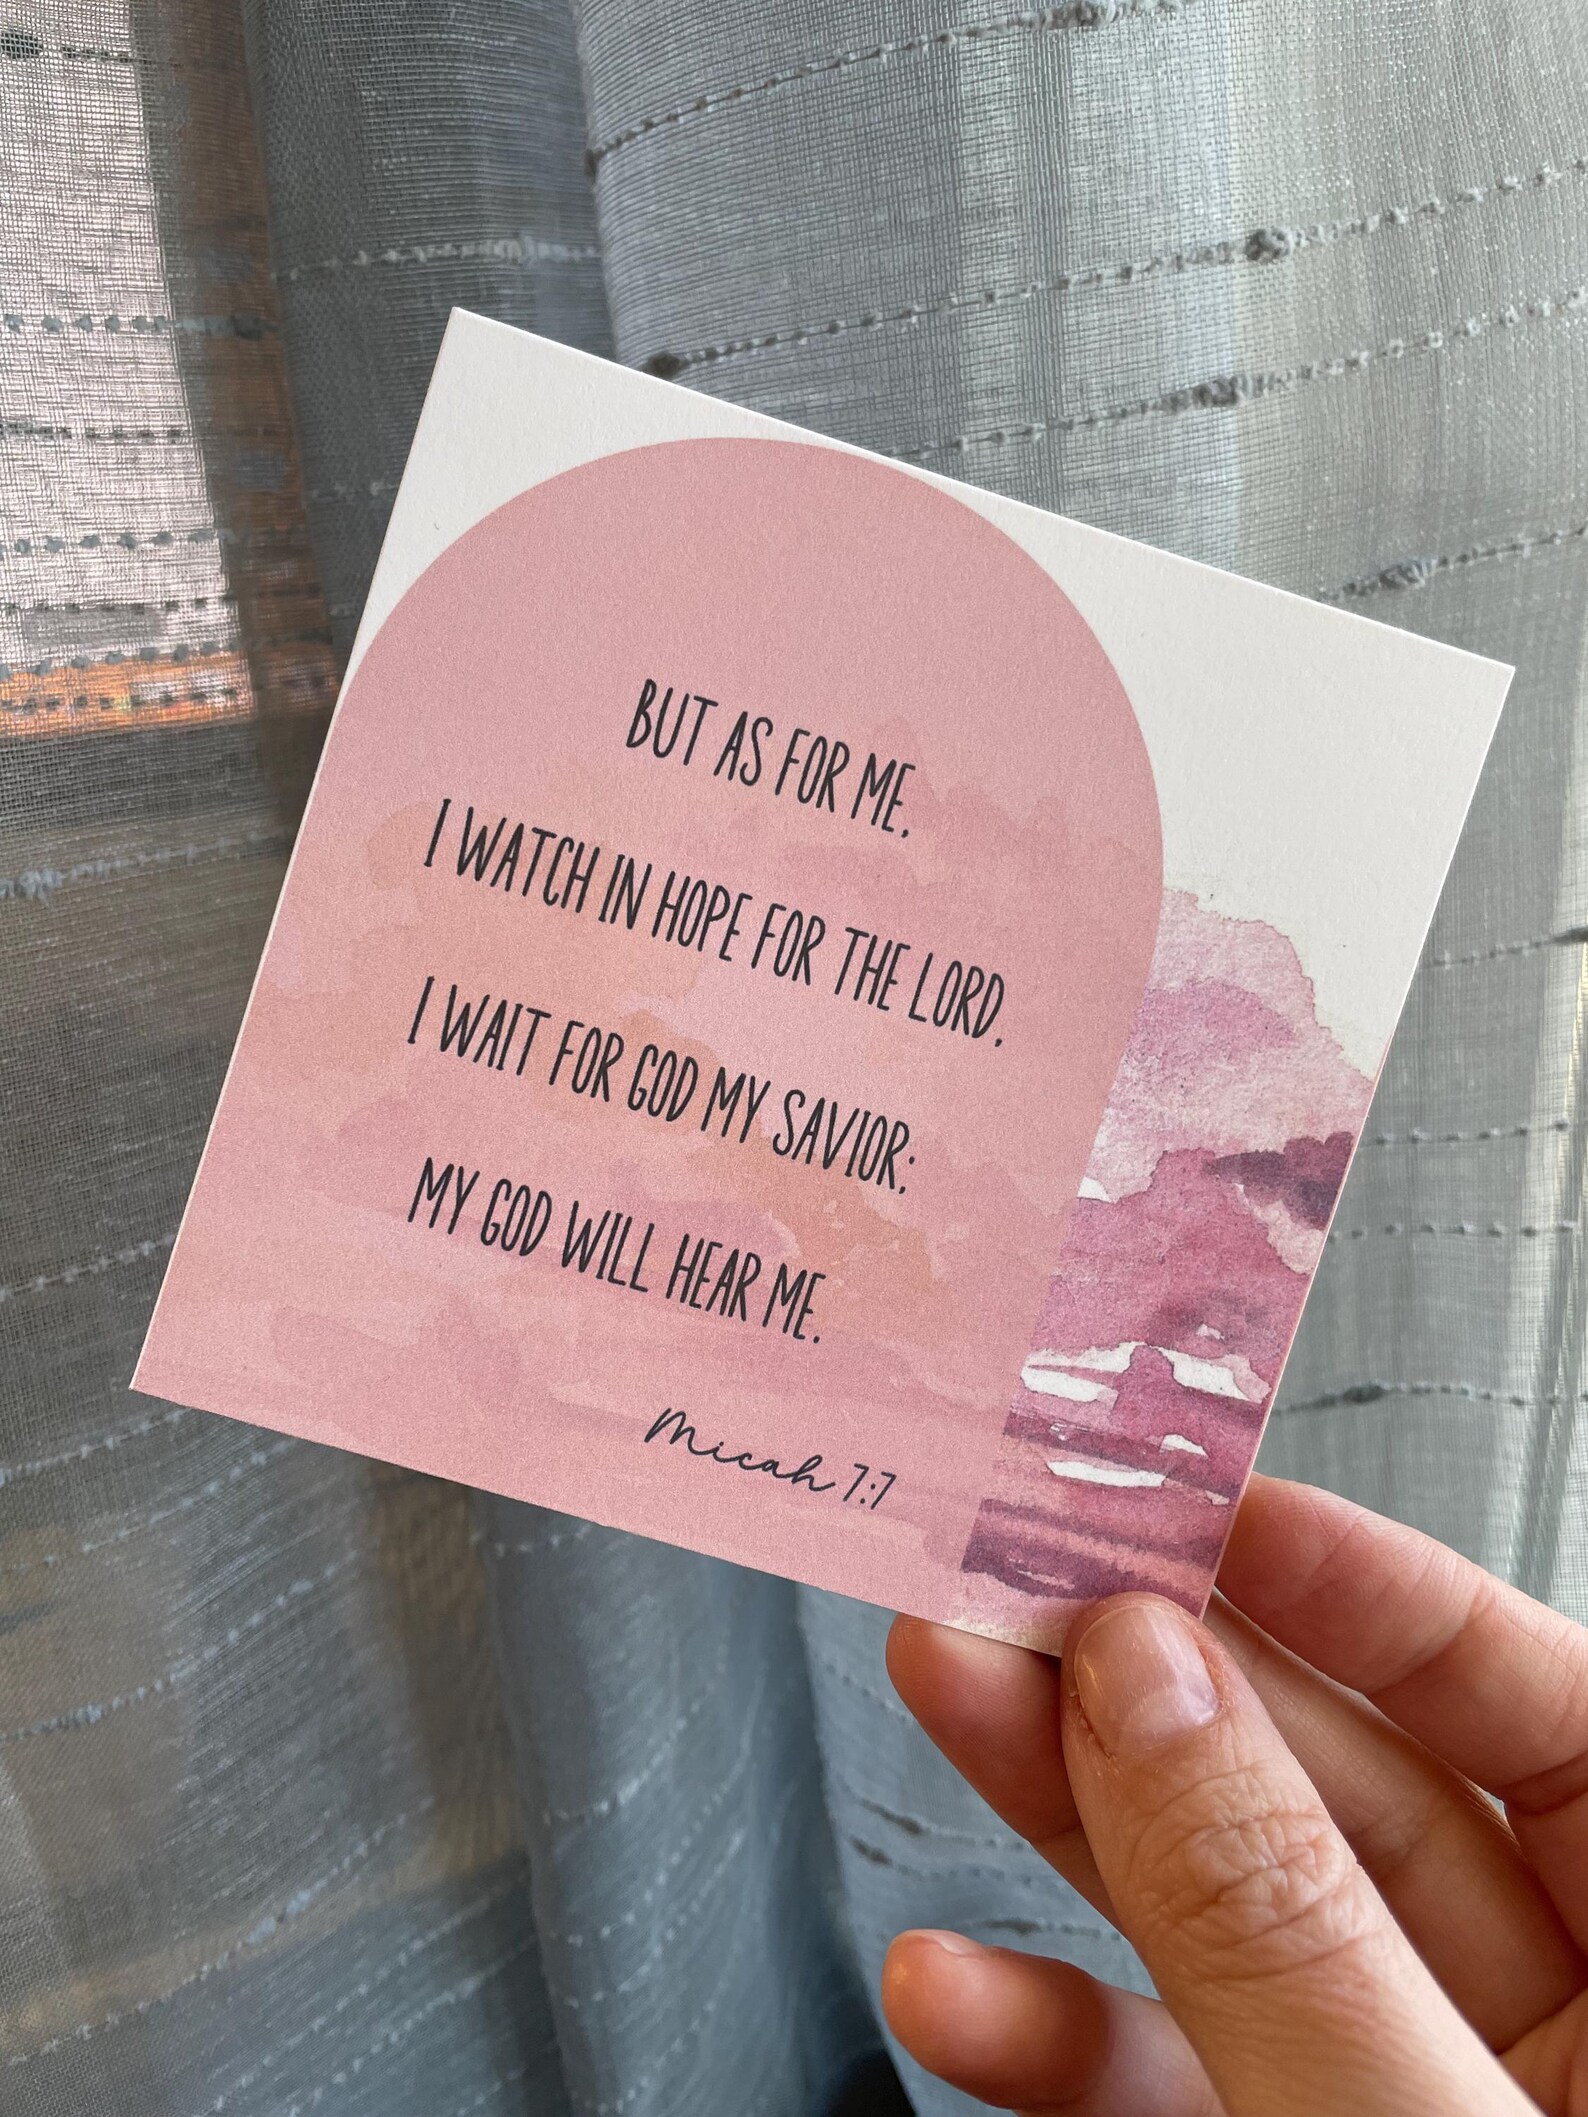 BUT AS FOR ME,
I WATCH IN HOPE FOR THE LORD,
I WAIT FOR GOD MY SAVIOR;
MY GOD WILL HEAR ME.
Micah 7:7